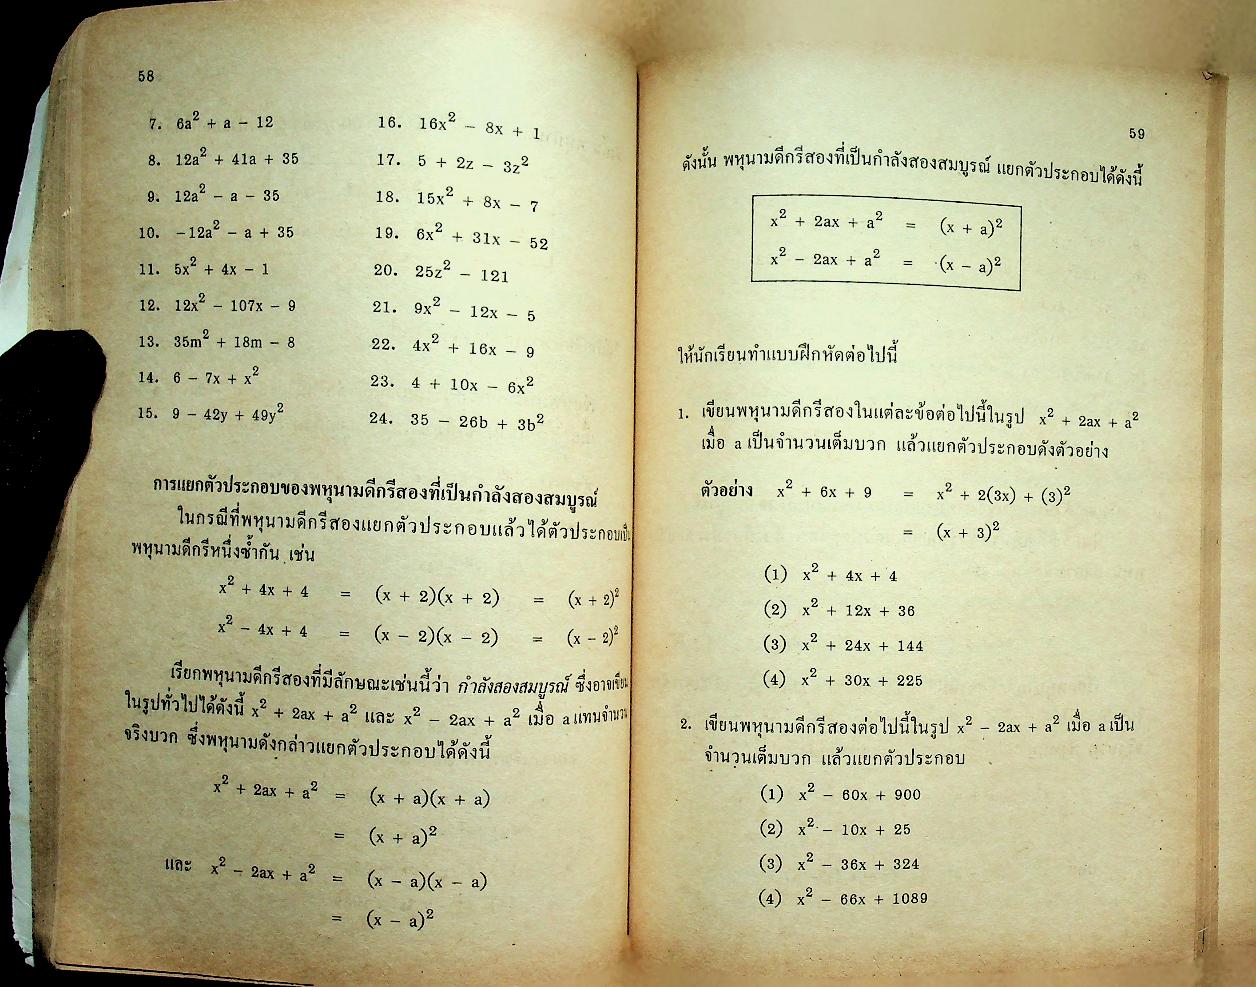 58
7. 6a² + a − 12
8. 12a² + 41a + 35
9. 12a² − a − 35
10. −12a² − a + 35
11. 5x² + 4x − 1
12. 12x² − 107x − 9
13. 35m² + 18m − 8
14. 6 − 7x + x²
15. 9 − 42y + 49y²
16. 16x² − 8x + 1
17. 5 + 2z − 3z²
18. 15x² + 8x − 7
19. 6x² + 31x − 52
20. 25z² − 121
21. 9x² − 12x − 5
22. 4x² + 16x − 9
23. 4 + 10x − 6x²
24. 35 − 26b + 3b²
การแยกตัวประกอบของพหุนามดีกรีสองที่เป็นกำลังสองสมบูรณ์
ในกรณีที่พหุนามดีกรีสองแยกตัวประกอบแล้วได้ตัวประกอบเป็น
พหุนามดีกรีหนึ่งซ้ำกัน เช่น
x² + 4x + 4 = (x + 2)(x + 2) = (x + 2)²
x² − 4x + 4 = (x − 2)(x − 2) = (x − 2)²
เรียกพหุนามดีกรีสองที่มีลักษณะเช่นนี้ว่า กำลังสองสมบูรณ์ ซึ่งอาจเขียน
ในรูปทั่วไปได้ดังนี้ x² + 2ax + a² และ x² − 2ax + a² เมื่อ a แทนจำนวน
จริงบวก ซึ่งพหุนามดังกล่าวแยกตัวประกอบได้ดังนี้
x² + 2ax + a² = (x + a)(x + a)
= (x + a)²
และ x² − 2ax + a² = (x − a)(x − a)
= (x − a)²
59
ดังนั้น พหุนามดีกรีสองที่เป็นกำลังสองสมบูรณ์ แยกตัวประกอบได้ดังนี้
x² + 2ax + a² = (x + a)²
x² − 2ax + a² = (x − a)²
ให้นักเรียนทำแบบฝึกหัดต่อไปนี้
1. เขียนพหุนามดีกรีสองในแต่ละข้อต่อไปนี้ในรูป x² + 2ax + a²
เมื่อ a เป็นจำนวนเต็มบวก แล้วแยกตัวประกอบดังตัวอย่าง
ตัวอย่าง x² + 6x + 9 = x² + 2(3x) + (3)²
= (x + 3)²
(1) x² + 4x + 4
(2) x² + 12x + 36
(3) x² + 24x + 144
(4) x² + 30x + 225
2. เขียนพหุนามดีกรีสองต่อไปนี้ในรูป x² − 2ax + a² เมื่อ a เป็น
จำนวนเต็มบวก แล้วแยกตัวประกอบ
(1) x² − 60x + 900
(2) x² − 10x + 25
(3) x² − 36x + 324
(4) x² − 66x + 1089